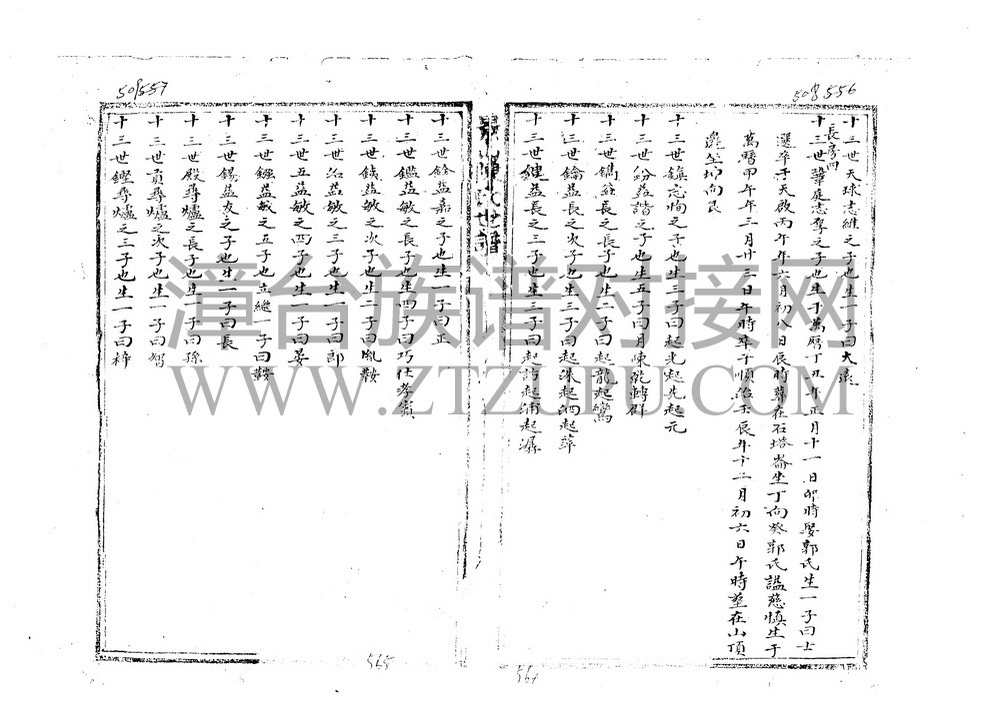 508556
十三世天球志維之子也生一子曰大遠
長房四
十三世肇庭志羣之子也生于萬曆丁丑年正月十一日卯時娶郭氏生一子曰士
選卒于天啟丙午年六月初八日辰時葬在石塔崙坐丁向癸郭氏謚慈慎生于
萬曆甲午年三月廿三日午時卒于順治壬辰年十二月初六日午時葬在山頂
邊坐坤向艮
十三世鎮志恂之子也生三子曰起光起先起元
十三世鈖益諧之子也生五子曰月陳乾轉群
十三世鐫益長之長子也生二子曰起龍起鸞
十三世鑰益長之次子也生三子曰起洙起泗起萍
十三世鏈益長之三子也生三子曰起訪起浦起潺
世譜
508557
十三世銓益嘉之子也生一子曰正
十三世鑑益敏之長子也生四子曰巧仕孝賓
十三世錢益敏之次子也生二子曰胤鞍
十三世治益敏之三子也生一子曰郎
十三世五益敏之四子也生一子曰晏
十三世鏗益敏之五子也立繼一子曰鞍
十三世錫益友之子也生一子曰長
十三世殿尋爐之長子也生一子曰孫
十三世貢尋爐之次子也生一子曰智
十三世鏗尋爐之三子也生一子曰梓
565
561
漳台族谱对接网
WWW.ZTZUPU.COM